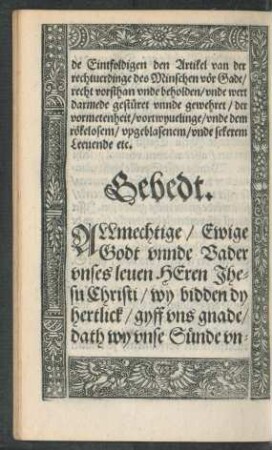 de Eintfoldigen den Artikel van der
rechtuerdinge des Minschen vör Gade/
recht vorsthan vnde beholden/vnde wert
darmede gestüret vnnde gewehret/der
vormetenheit/vortwyuelinge/vnde dem
rökelosem/vpgeblasenem/vnde sekerem
Leeuende etc.
Gebedt.
ALLmechtige/Ewige
Godt vnnde Vader
vnses leuen HEren Jhe-
su Christi/wy bidden dy
hertlick/gyff vns gnade/
dath wy vnse Sünde vn-